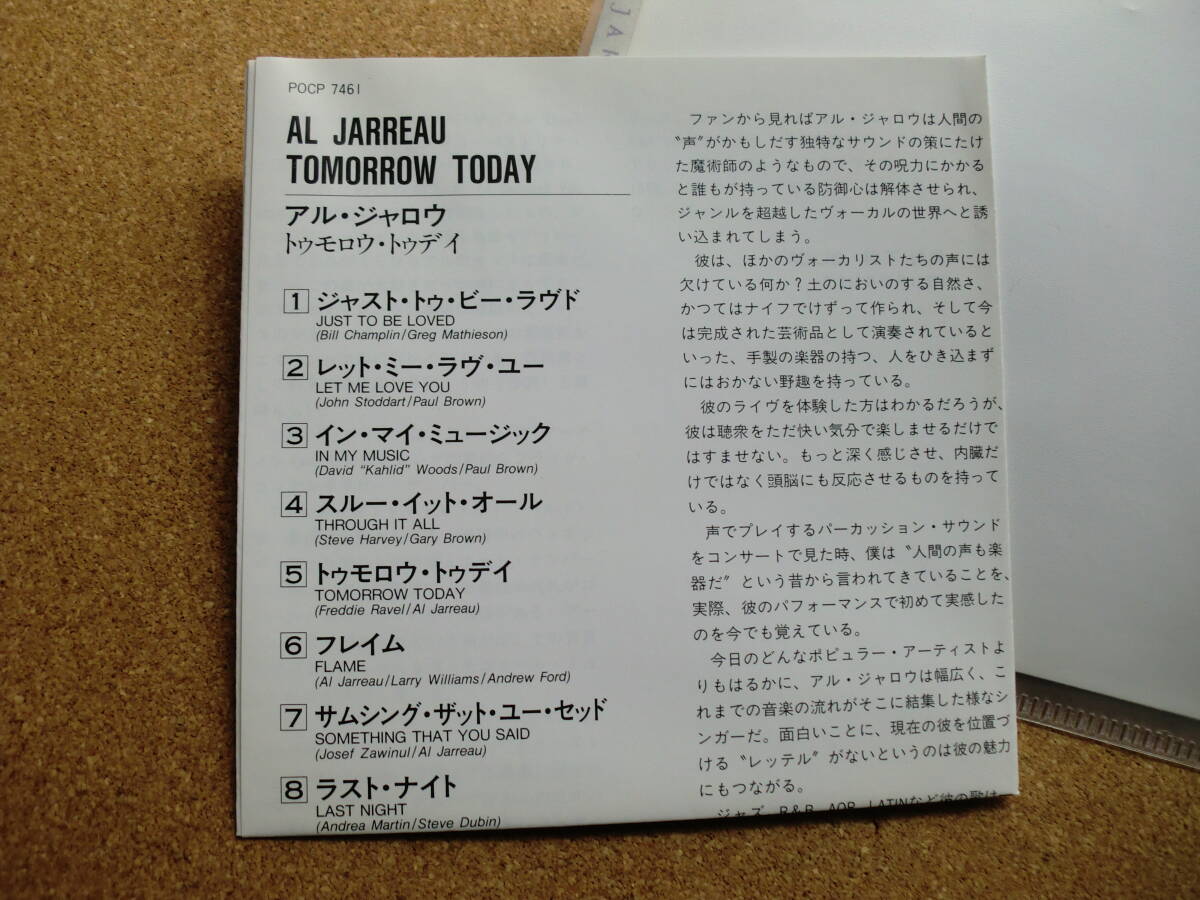 JA
POCP 7461
AL JARREAU
TOMORROW TODAY
アル・ジャロウ
トゥモロウ・トゥデイ
1 ジャスト・トゥ・ビー・ラヴド
JUST TO BE LOVED
(Bill Champlin/Greg Mathieson)
2 レット・ミー・ラヴ・ユー
LET ME LOVE YOU
(John Stoddart/Paul Brown)
3 イン・マイ・ミュージック
IN MY MUSIC
(David "Kahlid" Woods/Paul Brown)
4 スルー・イット・オール
THROUGH IT ALL
(Steve Harvey/Gary Brown)
5 トゥモロウ・トゥデイ
TOMORROW TODAY
(Freddie Ravel/Al Jarreau)
6 フレイム
FLAME
(Al Jarreau/Larry Williams/Andrew Ford)
7 サムシング・ザット・ユー・セッド
SOMETHING THAT YOU SAID
(Josef Zawinul/Al Jarreau)
8 ラスト・ナイト
LAST NIGHT
(Andrea Martin/Steve Dubin)
ファンから見ればアル・ジャロウは人間の
〝声〟がかもしだす独特なサウンドの策にたけ
た魔術師のようなもので、その呪力にかかる
と誰もが持っている防御心は解体させられ、
ジャンルを超越したヴォーカルの世界へと誘
い込まれてしまう。
彼は、ほかのヴォーカリストたちの声には
欠けている何か？土のにおいのする自然さ、
かつてはナイフでけずって作られ、そして今
は完成された芸術品として演奏されていると
いった、手製の楽器の持つ、人をひき込まず
にはおかない野趣を持っている。
彼のライヴを体験した方はわかるだろうが、
彼は聴衆をただ快い気分で楽しませるだけで
はすませない。もっと深く感じさせ、内臓だ
けではなく頭脳にも反応させるものを持って
いる。
声でプレイするパーカッション・サウンド
をコンサートで見た時、僕は〝人間の声も楽
器だ〟という昔から言われてきていることを、
実際、彼のパフォーマンスで初めて実感した
のを今でも覚えている。
今日のどんなポピュラー・アーティストよ
りもはるかに、アル・ジャロウは幅広く、こ
れまでの音楽の流れがそこに結集した様なシ
ンガーだ。面白いことに、現在の彼を位置づ
ける〝レッテル〟がないというのは彼の魅力
にもつながる。
ジャズ、R&B、AOR、LATINなど彼の歌は